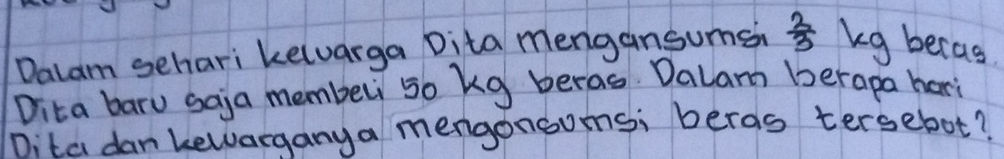 Dalam sehari keluarga Dita mengansumsi 2/3 kg beras.
Dita baru saja membeli 50 kg beras. Dalam berapa hari
Dita dan keluarganya mengonsumsi beras tersebut?